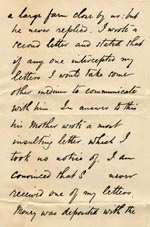 a large farm close by us: but
he never replied. I wrote a
second letter and stated that
if any one intercepted my
letters I would take some
other medium to communicate
with him. In answer to this
his Mother wrote a most
insulting letter which I
took no notice of. I am
convinced that I never
received one of my letters
Money was deposited with the